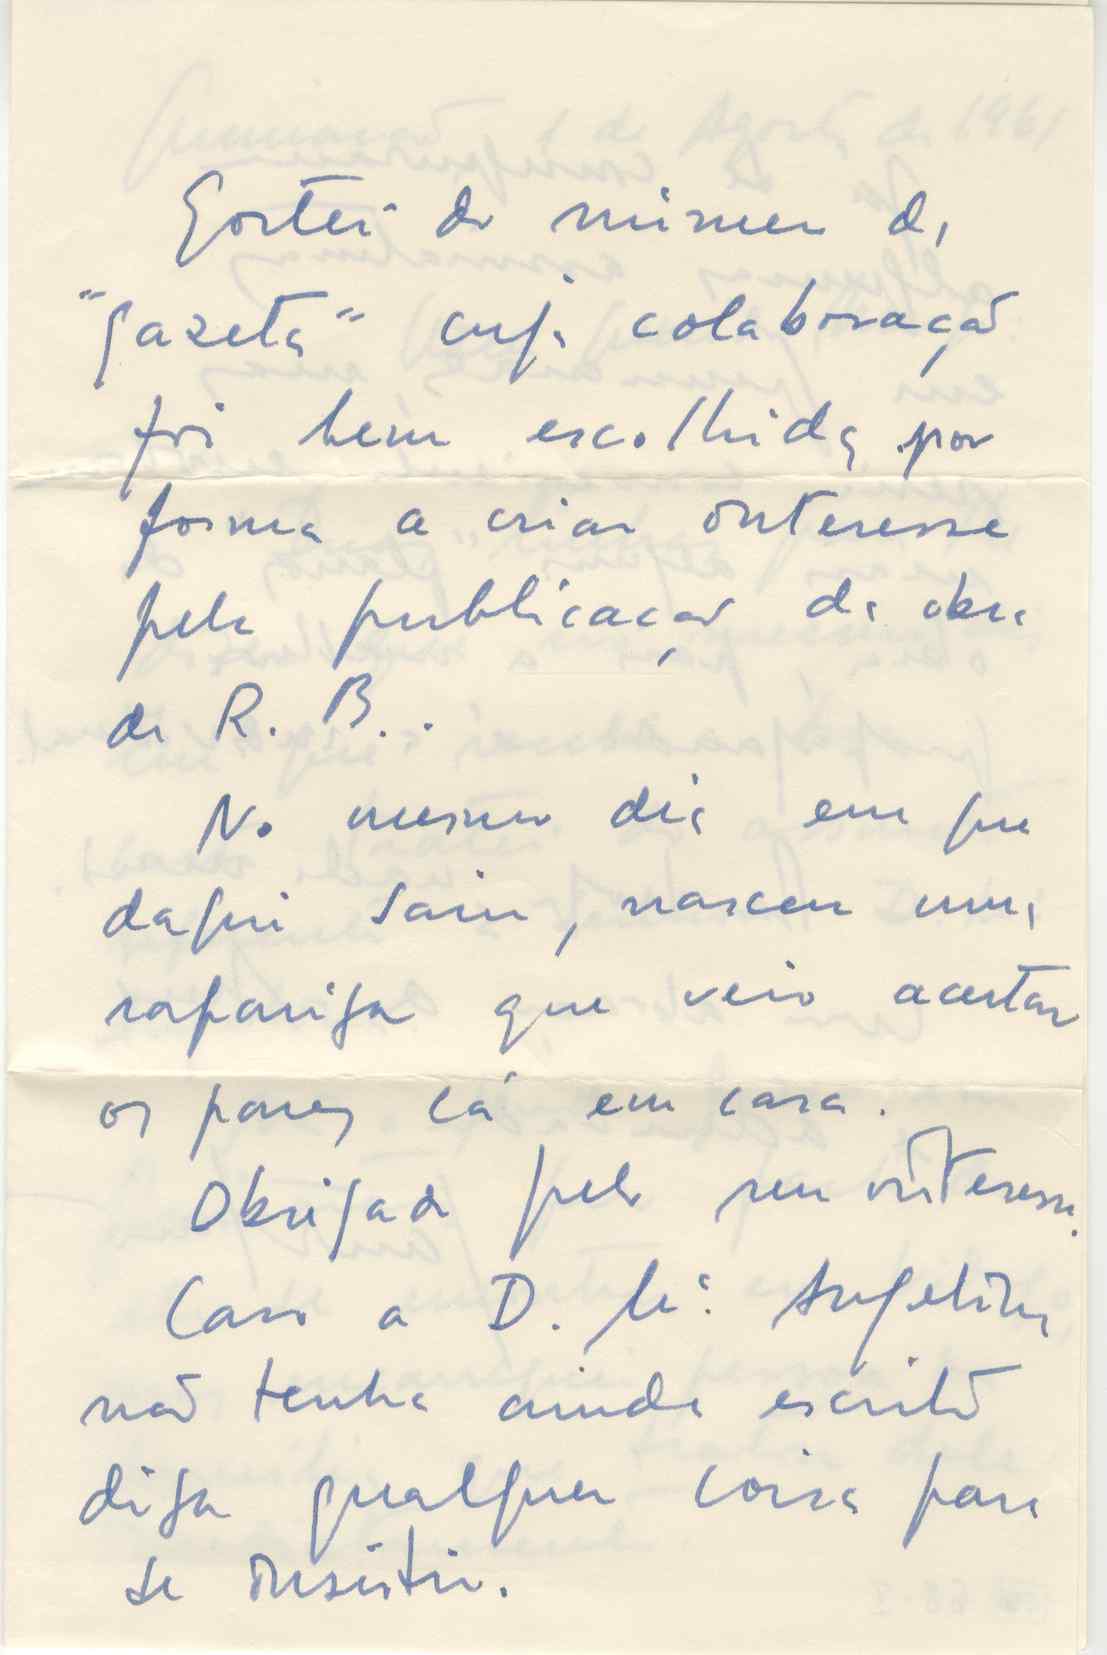 Gostei do número da
"Gazeta" cuja colaboração
foi bem escolhida por
forma a criar interesse
pela publicação da obra
de R. B..
No mesmo dia em que
daqui saiu, nasceu uma
rapariga que veio acertar
os pares cá em casa.
Obrigado pelo seu interesse.
Caso a D. Mª. Angelina
não tenha ainda escrito
diga qualquer coisa para
se insistir.